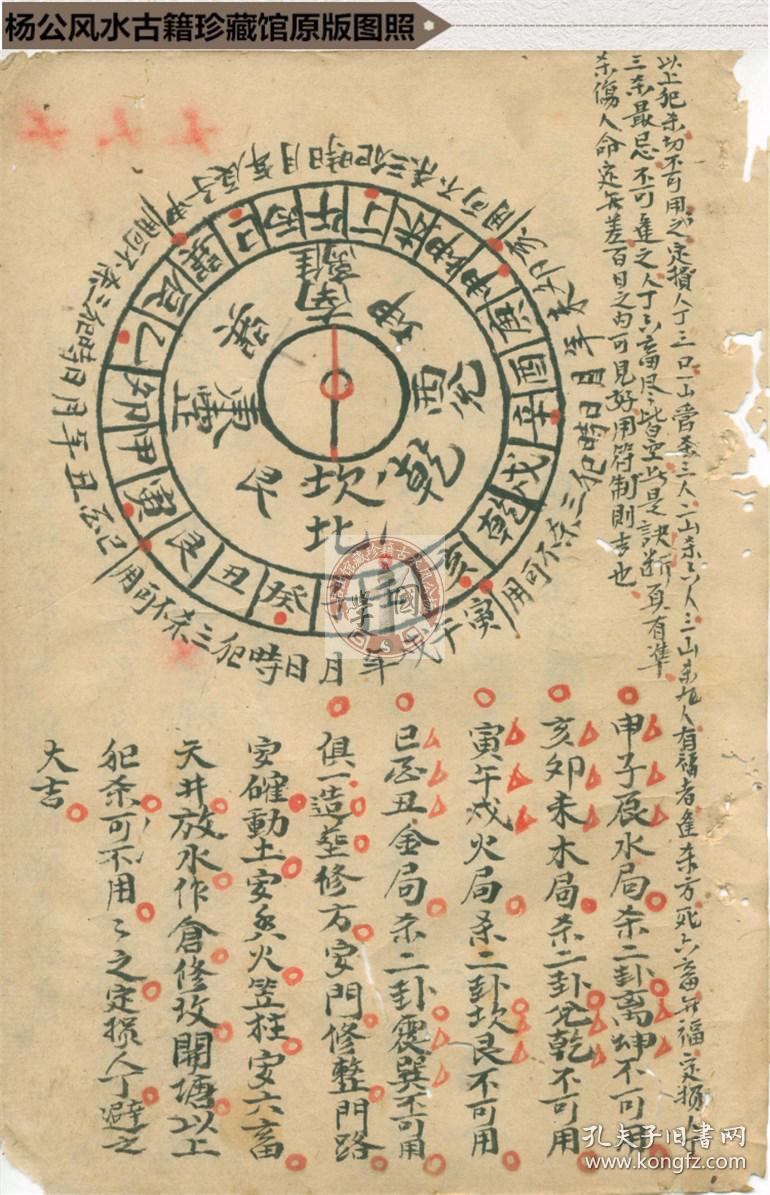 杨公风水古籍珍藏馆原版图照
以上犯杀切不可用之定损人丁三口一山管杀三人二山杀六人三山杀九人有福者逢杀方死六畜無福定损人丁
三杀最忌不可逢之人丁六畜尽皆空此是訣断真有準
杀傷人命定無差百日之内可見好用符制則吉也
申子辰年月日時犯三杀不可用
亥卯未年月日時犯三杀不可用
寅午戌年月日時犯三杀不可用
巳酉丑年月日時犯三杀不可用
丙午丁未坤申庚酉辛戌乾亥壬子癸丑艮寅甲卯乙辰巽巳
南離
坤
西兑
乾
坎北
艮
東震
巽
申子辰水局杀二卦离坤不可用
亥卯未木局杀二卦兑乾不可用
寅午戌火局杀二卦坎艮不可用
巳酉丑金局杀二卦震巽不可用
俱一造塟修方安門修整門路
安碓動土安火竖柱安六畜
天井放水作倉修坟開塘以上
犯杀可不用々之定损人丁避之
大吉
孔夫子旧书网
www.kongfz.com